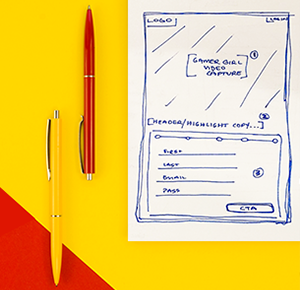 LOGO LOGIN
1
[GAMER GIRL
VIDEO
CAPTURE]
2
[HEADER/HIGHLIGHT COPY...]
FIRST
LAST
3
EMAIL
PASS
CTA